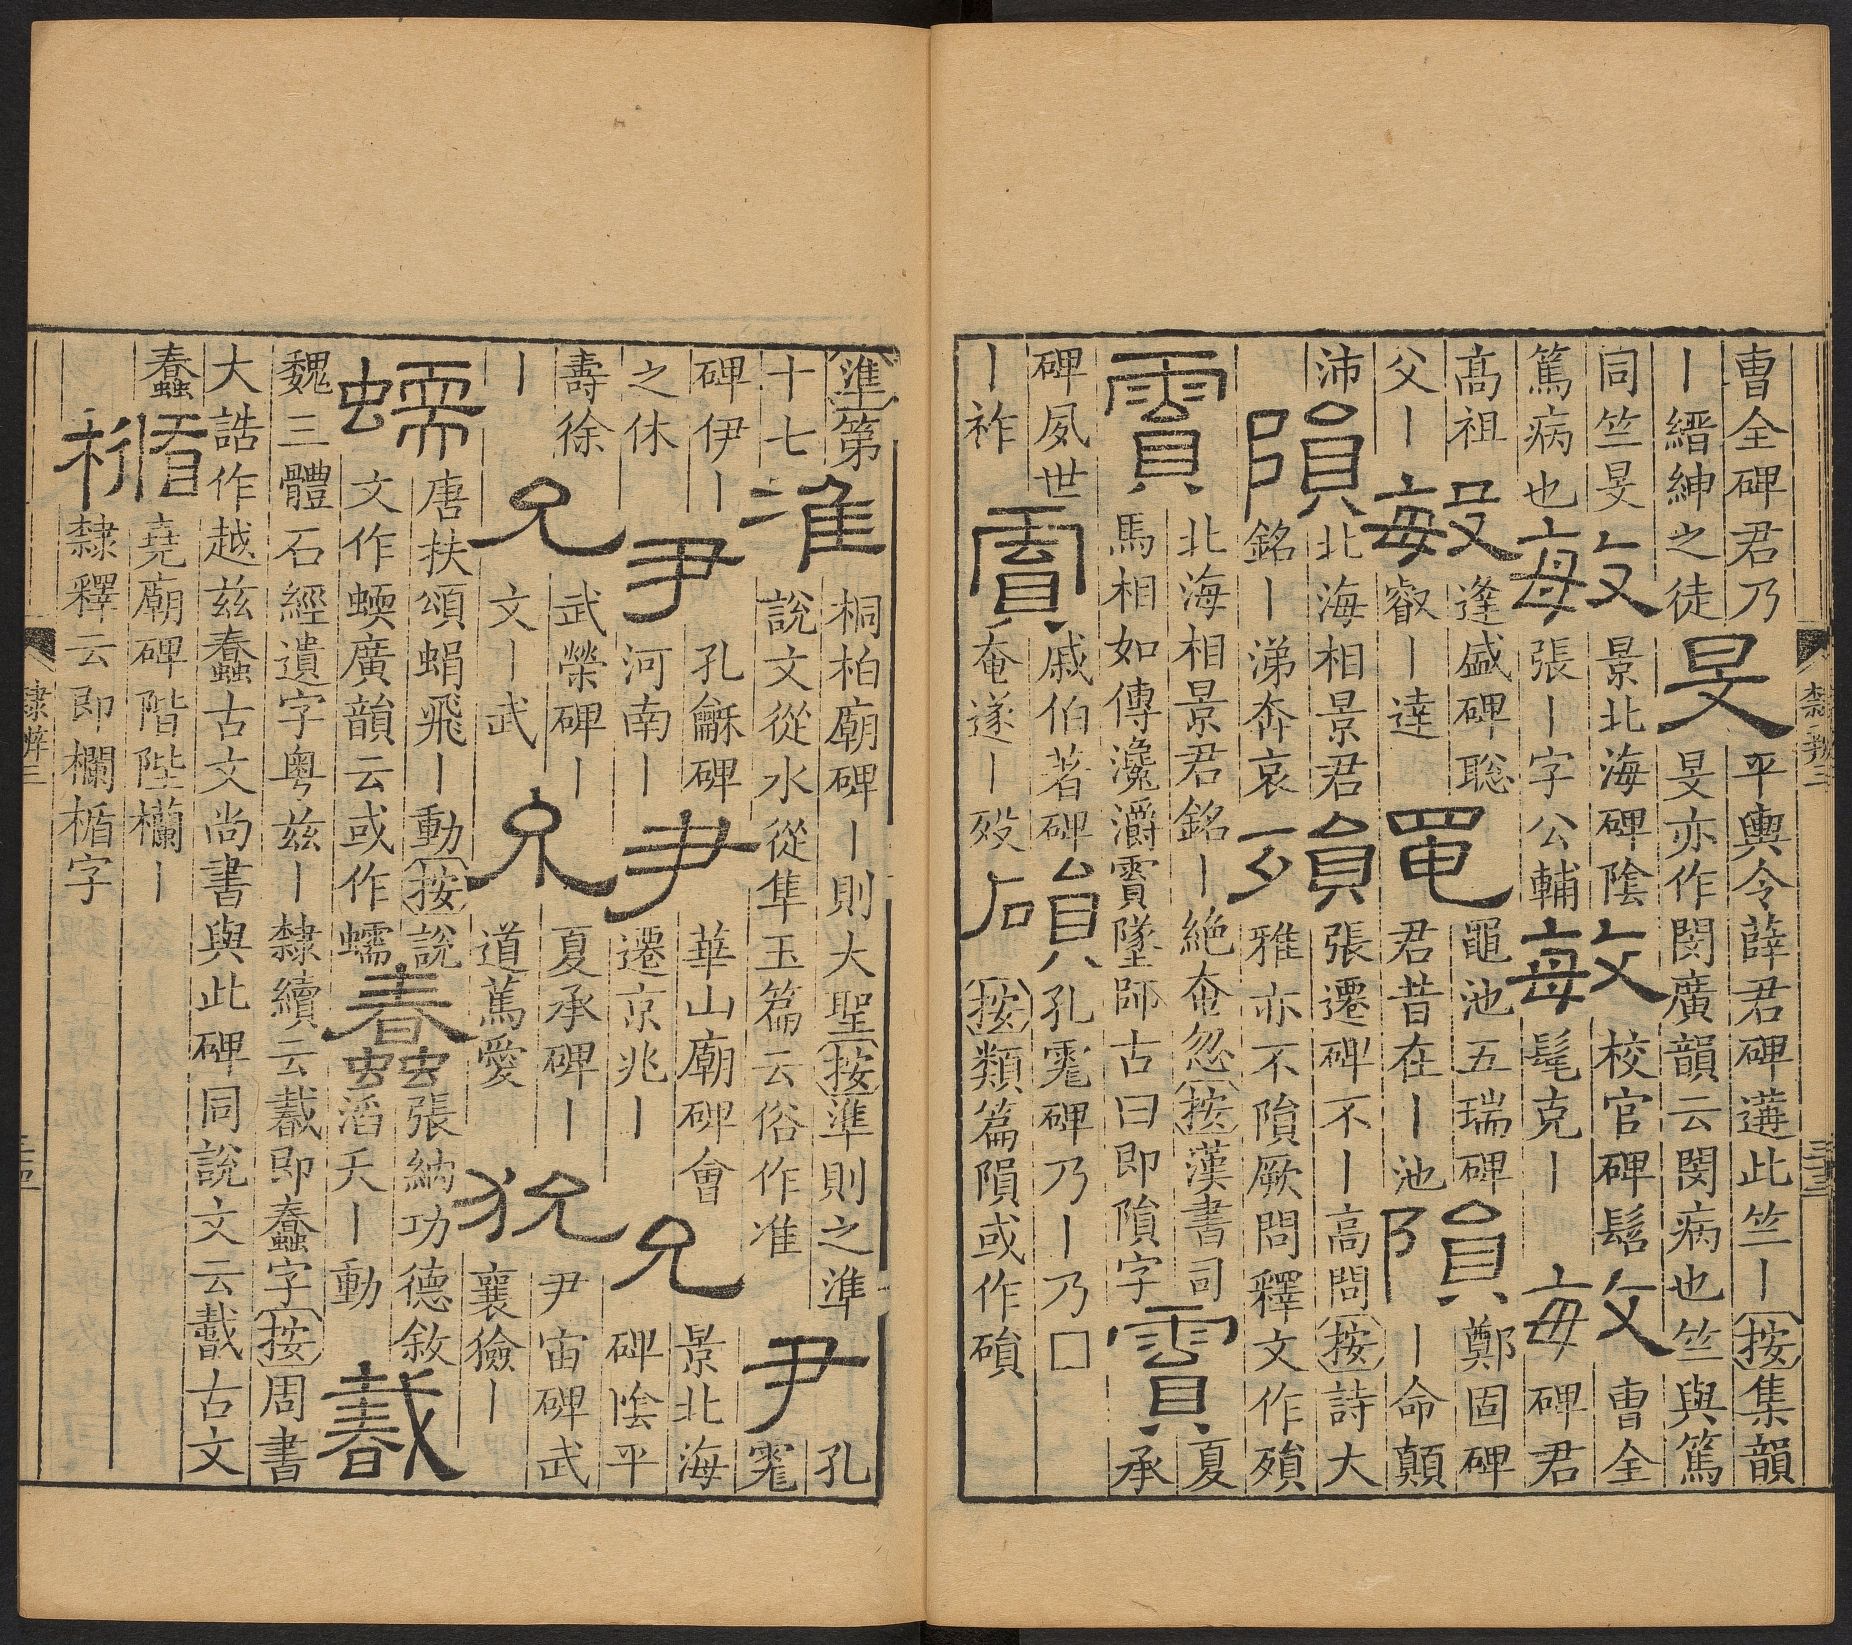 曹全碑君乃
丨縉紳之徒
旻
平輿令薛君碑遘此竺丨按集韻
旻亦作閔廣韻云閔病也竺與篤
同竺旻
篤病也
敏
景北海碑陰
張丨字公輔
敏
校官碑髫
髦克丨
敏
曹全
碑君
高祖
父丨
敏
逢盛碑聡
叡丨達
黽
黽池五瑞碑
君昔在丨池
隕
鄭固碑
丨命顛
沛
隕
北海相景君
銘丨涕奔哀
殞
張遷碑不丨高問按詩大
雅亦不隕厥問釋文作殞
霣
北海相景君銘丨絶奄忽按漢書司
馬相如傳瀺灂霣墜師古曰即隕字
霣
夏
承
碑夙世
丨祚
霣
戚伯著碑
奄遂丨歿
磒
孔彪碑乃丨乃□
按類篇隕或作磒
隸辨三
三十三
準第
十七
准
桐柏廟碑丨則大聖按準則之準
說文從水從隼玉篇云俗作准
尹
孔
彪
碑伊丨
之休
尹
孔龢碑
河南丨
尹
華山廟碑會
遷京兆丨
允
景北海
碑陰平
壽徐
丨
允
武榮碑丨
文丨武
允
夏承碑丨
道篤愛
狁
尹宙碑武
襄獫丨
蠕
唐扶頌蜎飛丨動按說
文作蝡廣韻云或作蠕
蠢
張納功德敘
滔天丨動
𢧵
魏三體石經遺字粤兹丨隸續云𢧵即蠢字按周書
大誥作越兹蠢古文尚書與此碑同說文云𢧵古文
蠢
楯
堯廟碑階陛欄丨
隸釋云即欄楯字
隸辨三